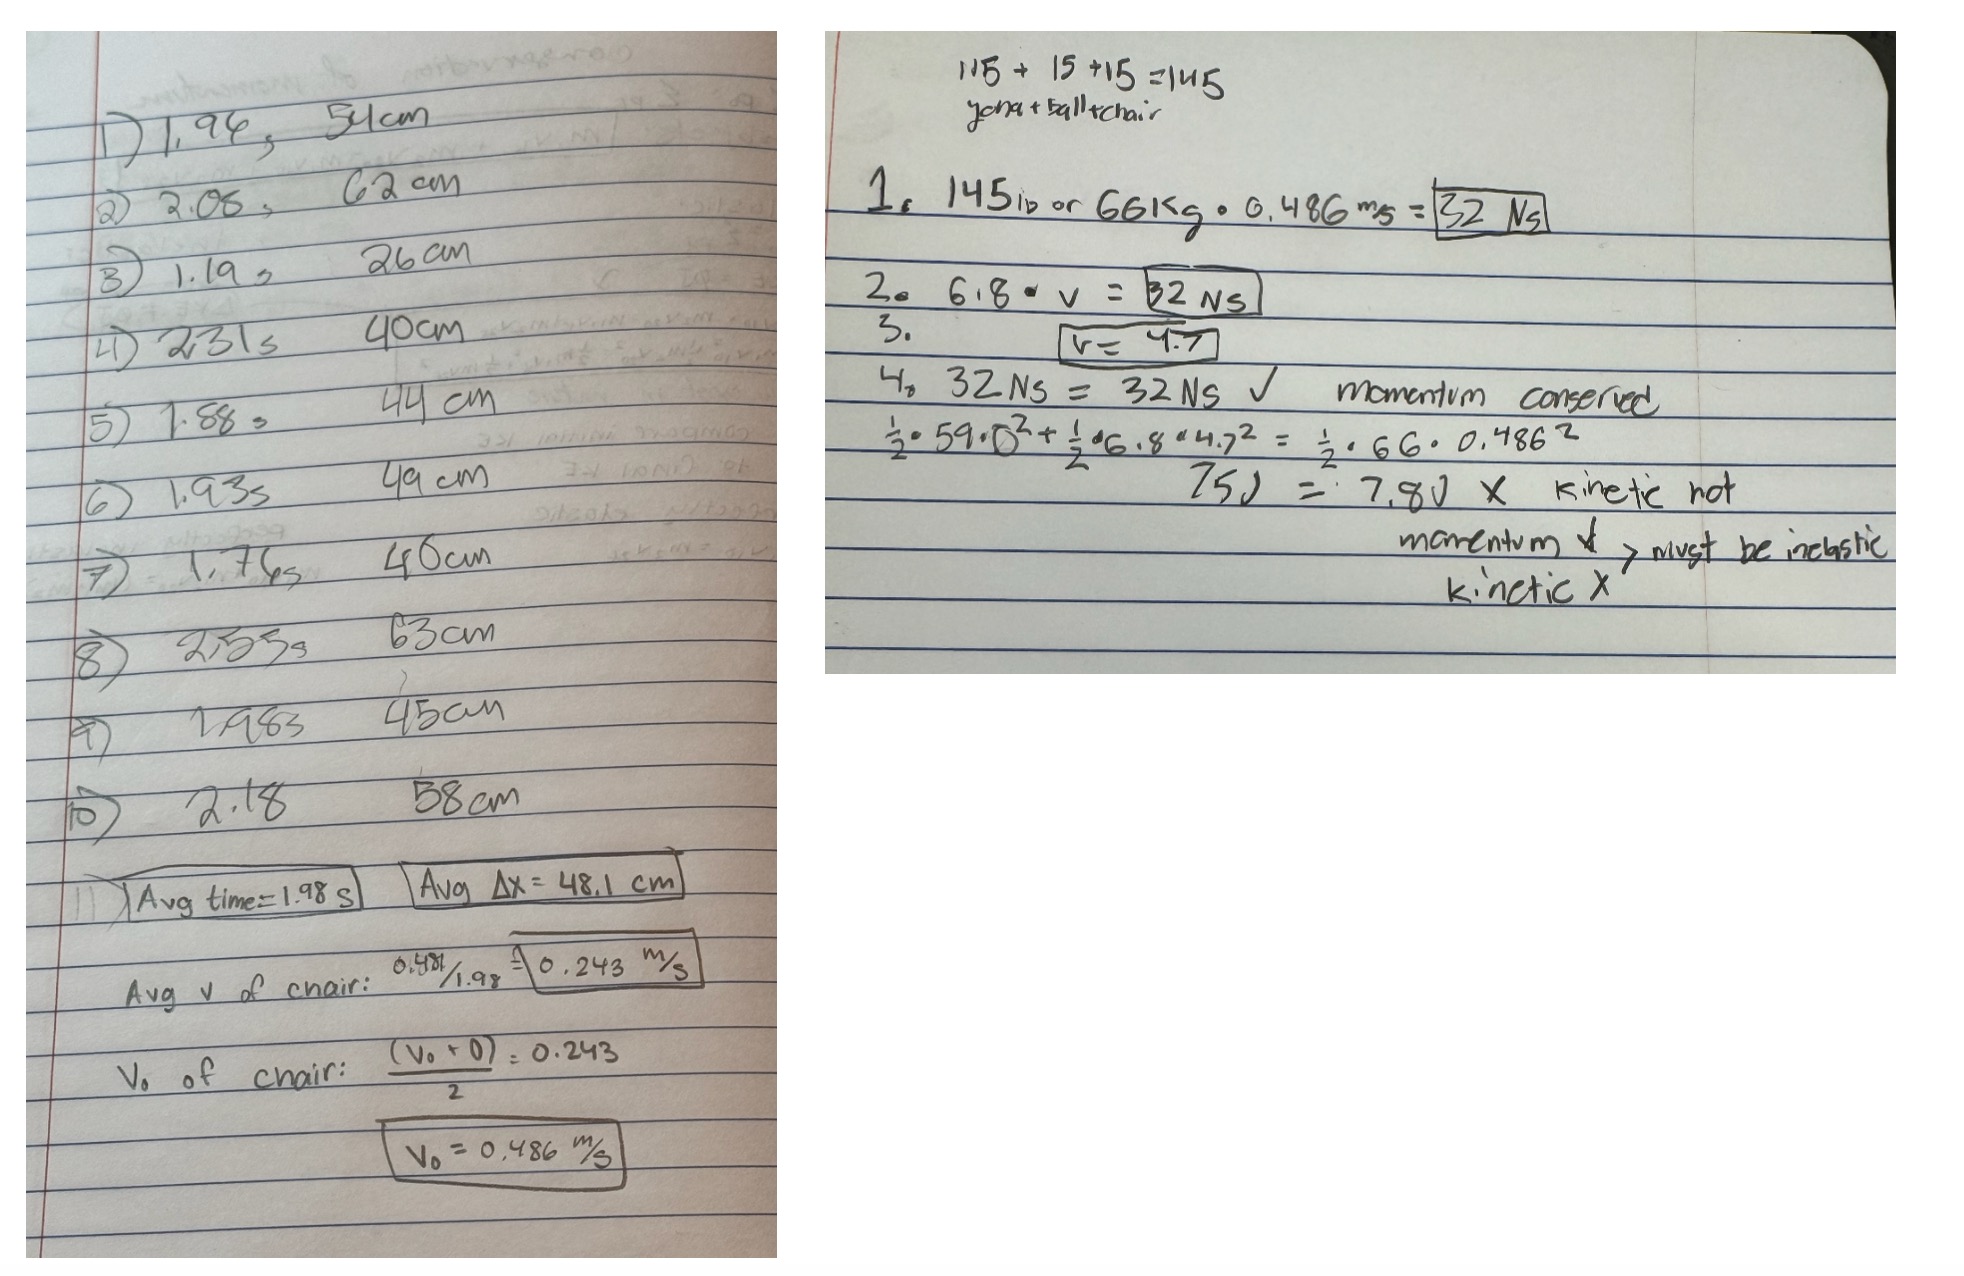 1) 1.96s 54cm
2) 2.08s 62 cm
3) 1.19s 26cm
4) 2.31s 40cm
5) 1.88s 44 cm
6) 1.93s 49 cm
7) 1.76s 40cm
8) 2.55s 63cm
9) 1.98s 45cm
10) 2.18 58cm
11) Avg time=1.98 s Avg Δx= 48.1 cm
Avg v of chair: 0.481/1.98 = 0.243 m/s
V₀ of chair: (V₀ + 0)/2 = 0.243
V₀ = 0.486 m/s
115 + 15 +15 =145
yona + ball+chair
1. 145lb or 66Kg • 0.486 m/s = 32 Ns
2. 6.8 • v = 32 Ns
3. v= 4.7
4. 32 Ns = 32 Ns ✓ momentum conserved
½•59•0²+½•6.8•4.7² = ½•66•0.486²
75J = 7.8J X kinetic not
momentum ✓ > must be inelastic
kinetic X